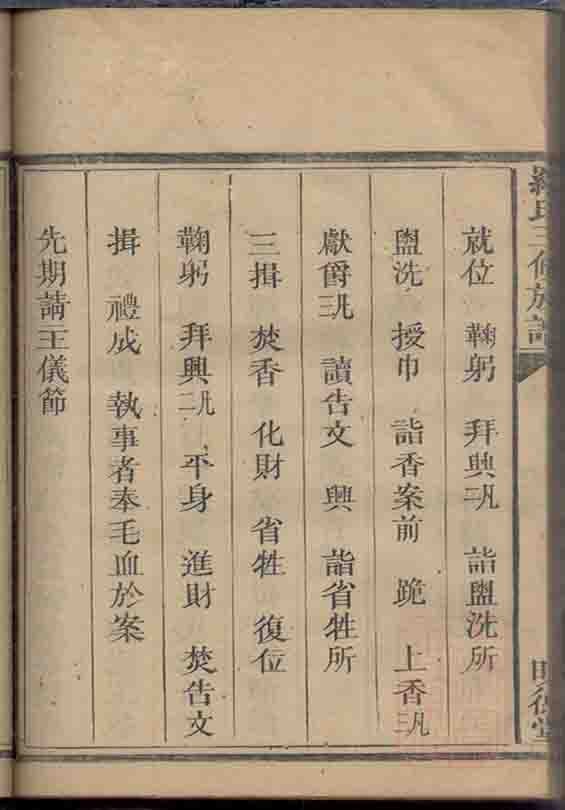 羅氏三修族譜
就位 鞠躬 拜興凡二 詣盥洗所
盥洗 授巾 詣香案前 跪 上香凡三
獻爵凡三 讀告文 興 詣省牲所
三揖 焚香 化財 省牲 復位
鞠躬 拜興凡二 平身 進財 焚告文
揖 禮成 執事者奉毛血於案
先期請主儀節